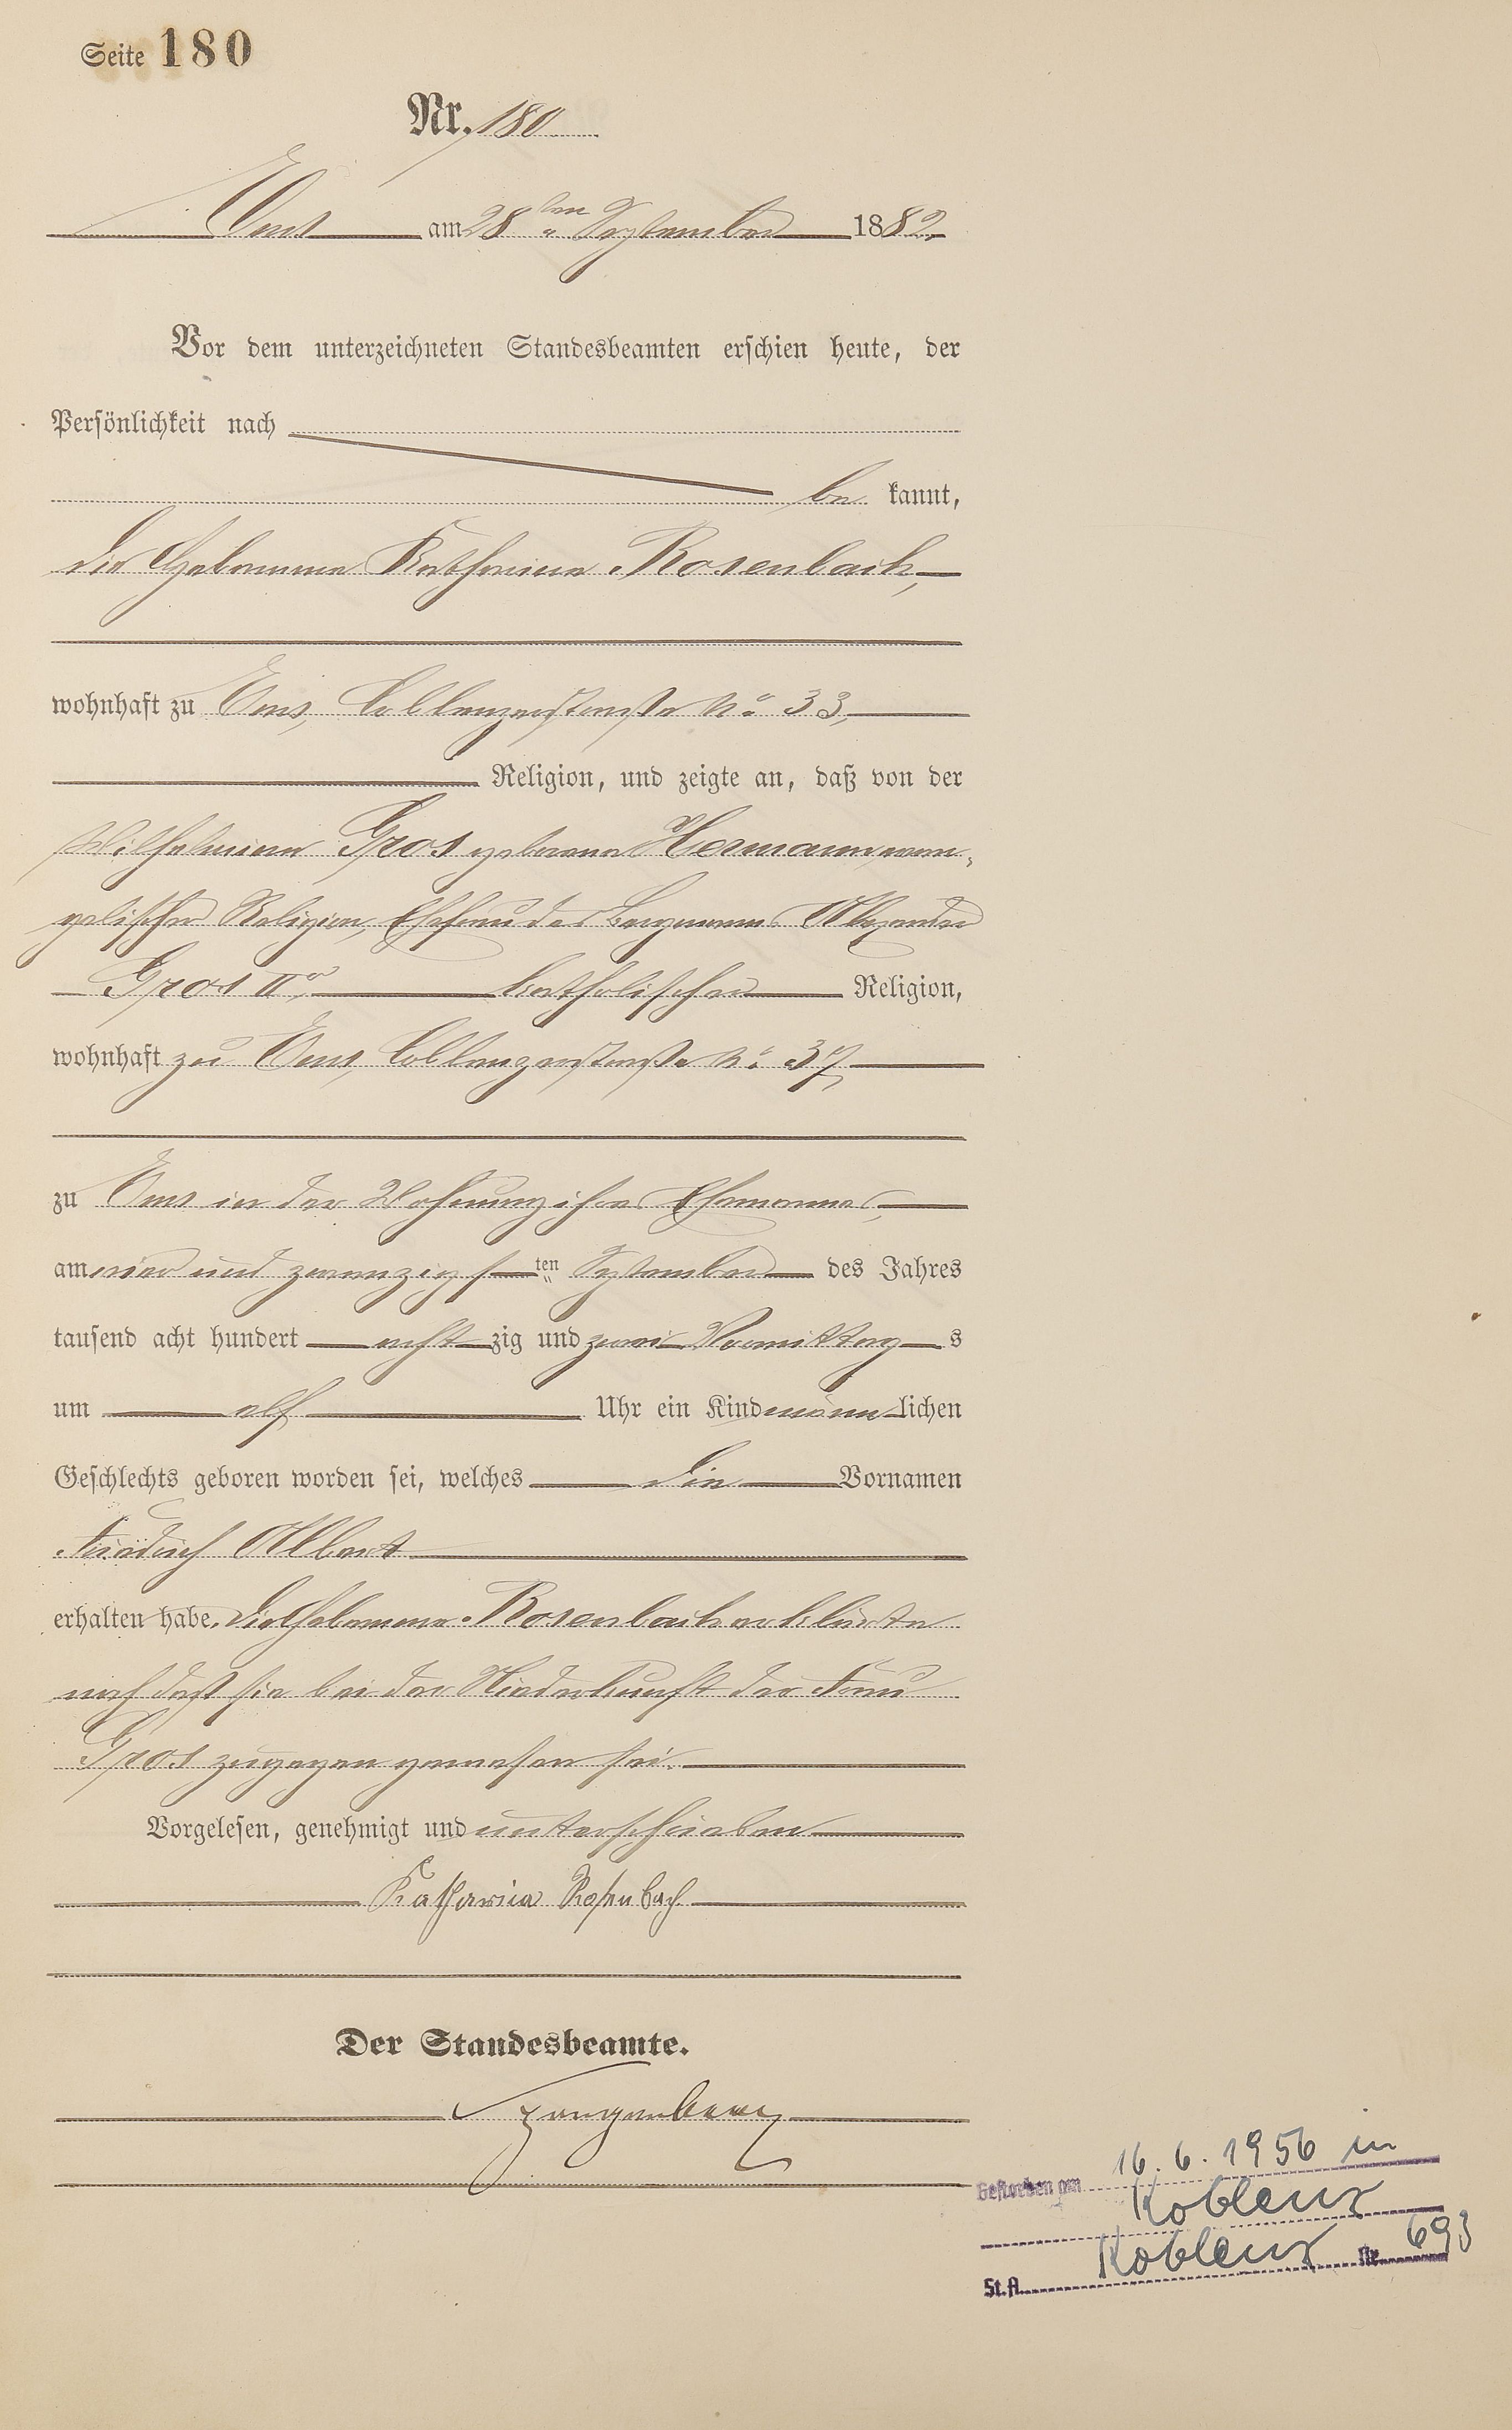 Seite 180
Nr. 180
Ems am 28ten September 1882.
Vor dem unterzeichneten Standesbeamten erschien heute, der
Persönlichkeit nach
be kannt,
die Hebamme Katharina Rosenbach,
wohnhaft zu Ems, Coblenzerstraße No 33,
Religion, und zeigte an, daß von der
Wilhelmine Gros geborene Hermann, evan-
gelischer Religion, Ehefrau des Bergmanns Alexander
Gros IIr, katholischer Religion,
wohnhaft zu Ems, Coblenzerstraße No 37,
zu Ems in der Wohnung ihres Ehemannes,
am vier und zwanzigsten September des Jahres
tausend acht hundert achtzig und zwei Vormittags
um elf Uhr ein Kind männlichen
Geschlechts geboren worden sei, welches die Vornamen
Friedrich Albert
erhalten habe. Die Hebamme Rosenbach erklärte
noch daß sie bei der Niederkunft der Frau
Gros zugegen gewesen sei.
Vorgelesen, genehmigt und unterschrieben
Katharina Rosenbach
Der Standesbeamte.
Gestorben am 16.6.1956 in
Koblenz
St.A. Koblenz Nr. 693